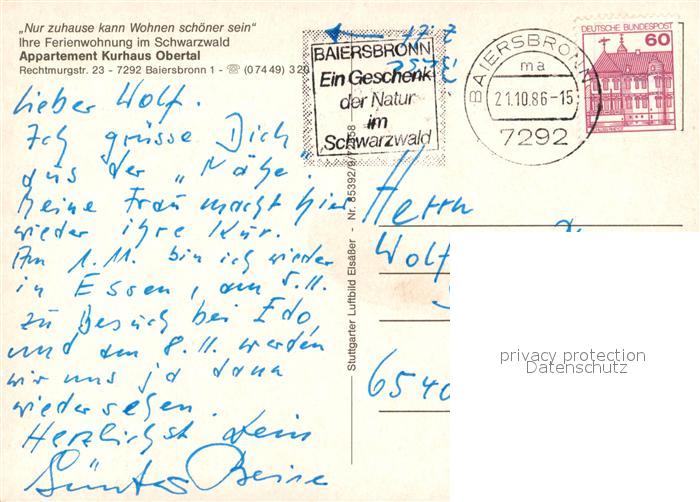 „Nur zuhause kann Wohnen schöner sein“
Ihre Ferienwohnung im Schwarzwald
Appartement Kurhaus Obertal
Rechtmurgstr. 23 - 7292 Baiersbronn 1 - ☏ (07449) 320
Lieber Wolf.
Ich grüsse Dich
aus der „Nähe“.
Meine Frau macht hier
wieder ihre Kur.
Am 1.11. bin ich wieder
in Essen, am 5.11.
zu Besuch bei Edo,
und am 8.11. werden
wir uns ja dann
wiedersehen.
Herzlichst Dein
Günter
BAIERSBRONN
Ein Geschenk
der Natur
im
Schwarzwald
BAIERSBRONN
ma
21.10.86-15
7292
DEUTSCHE BUNDESPOST
60
Stuttgarter Luftbild Elsäßer - Nr. 85392/9/72358
Herrn
Wolf
6540
privacy protection
Datenschutz